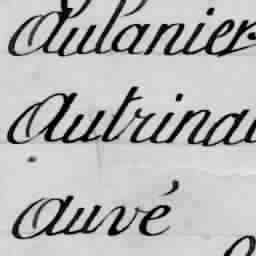 Aulanier
Autrinal
Auvé